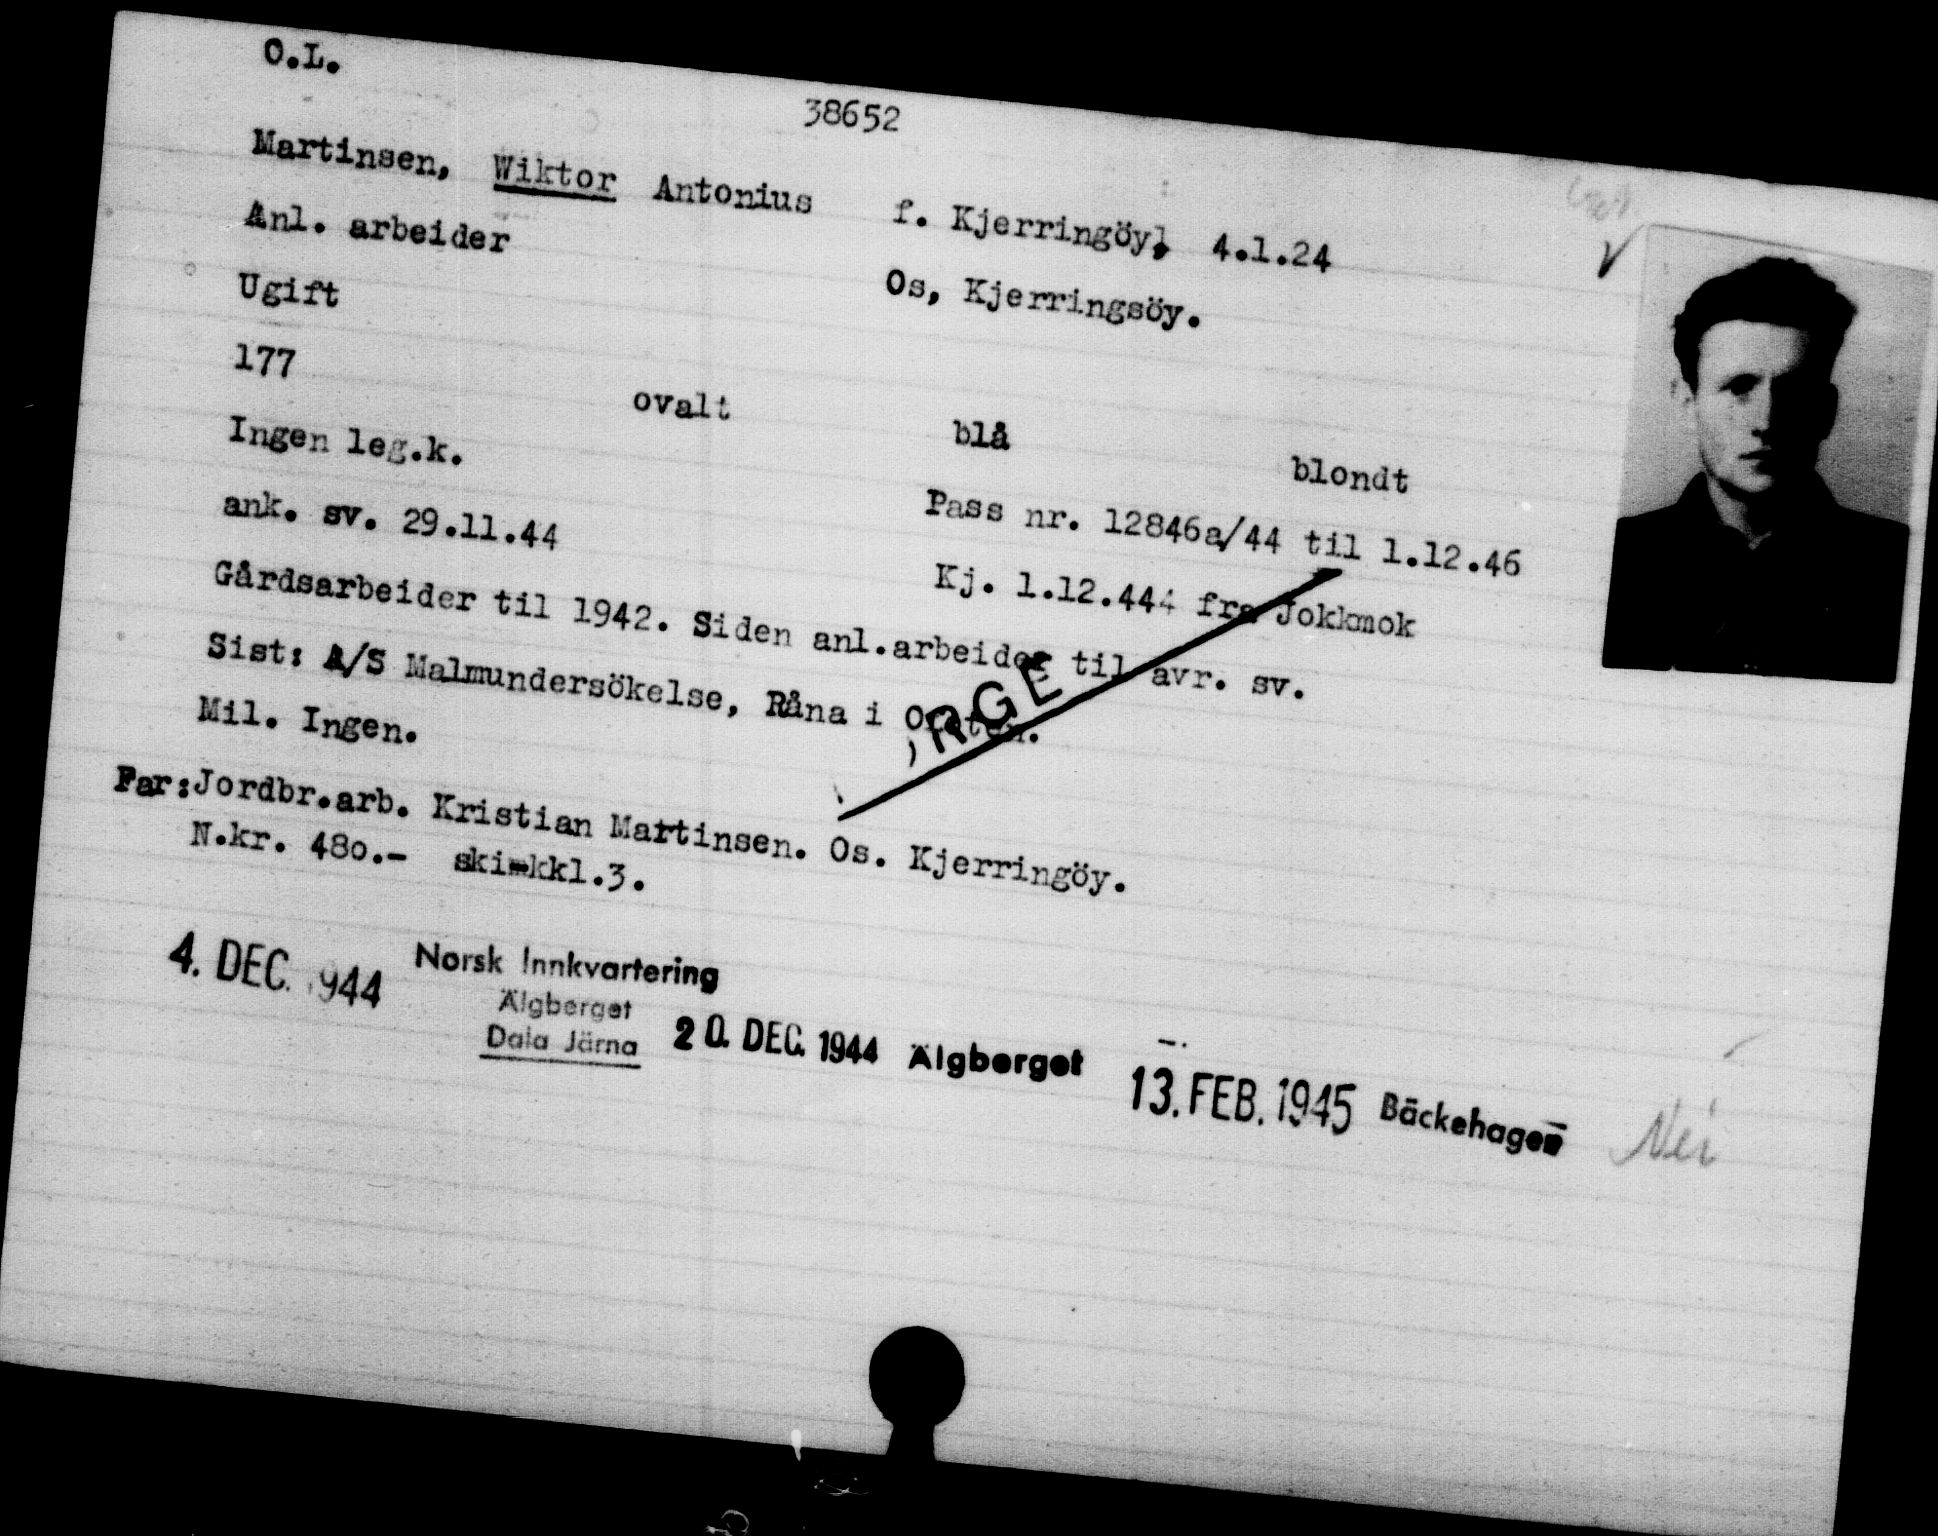 O.L.
38652
Martinsen, Wiktor Antonius f. Kjerringöy, 4.1.24
Anl. arbeider Os, Kjerringsöy.
Ugift
177 ovalt blå blondt
Ingen leg.k. Pass nr. 12846a/44 til 1.12.46
ank. sv. 29.11.44 Kj. 1.12.444 fra Jokkmok
Gårdsarbeider til 1942. Siden anl.arbeider til avr. sv.
Sist: A/S Malmundersökelse, Råna i Ofoten.
RGE
Mil. Ingen.
Far: Jordbr.arb. Kristian Martinsen. Os. Kjerringöy.
N.kr. 480.- ski-kkl.3.
4. DEC. 1944 Norsk Innkvartering
Älgberget
Dala Järna
20. DEC. 1944 Älgberget 13. FEB. 1945 Bäckehagen Nei